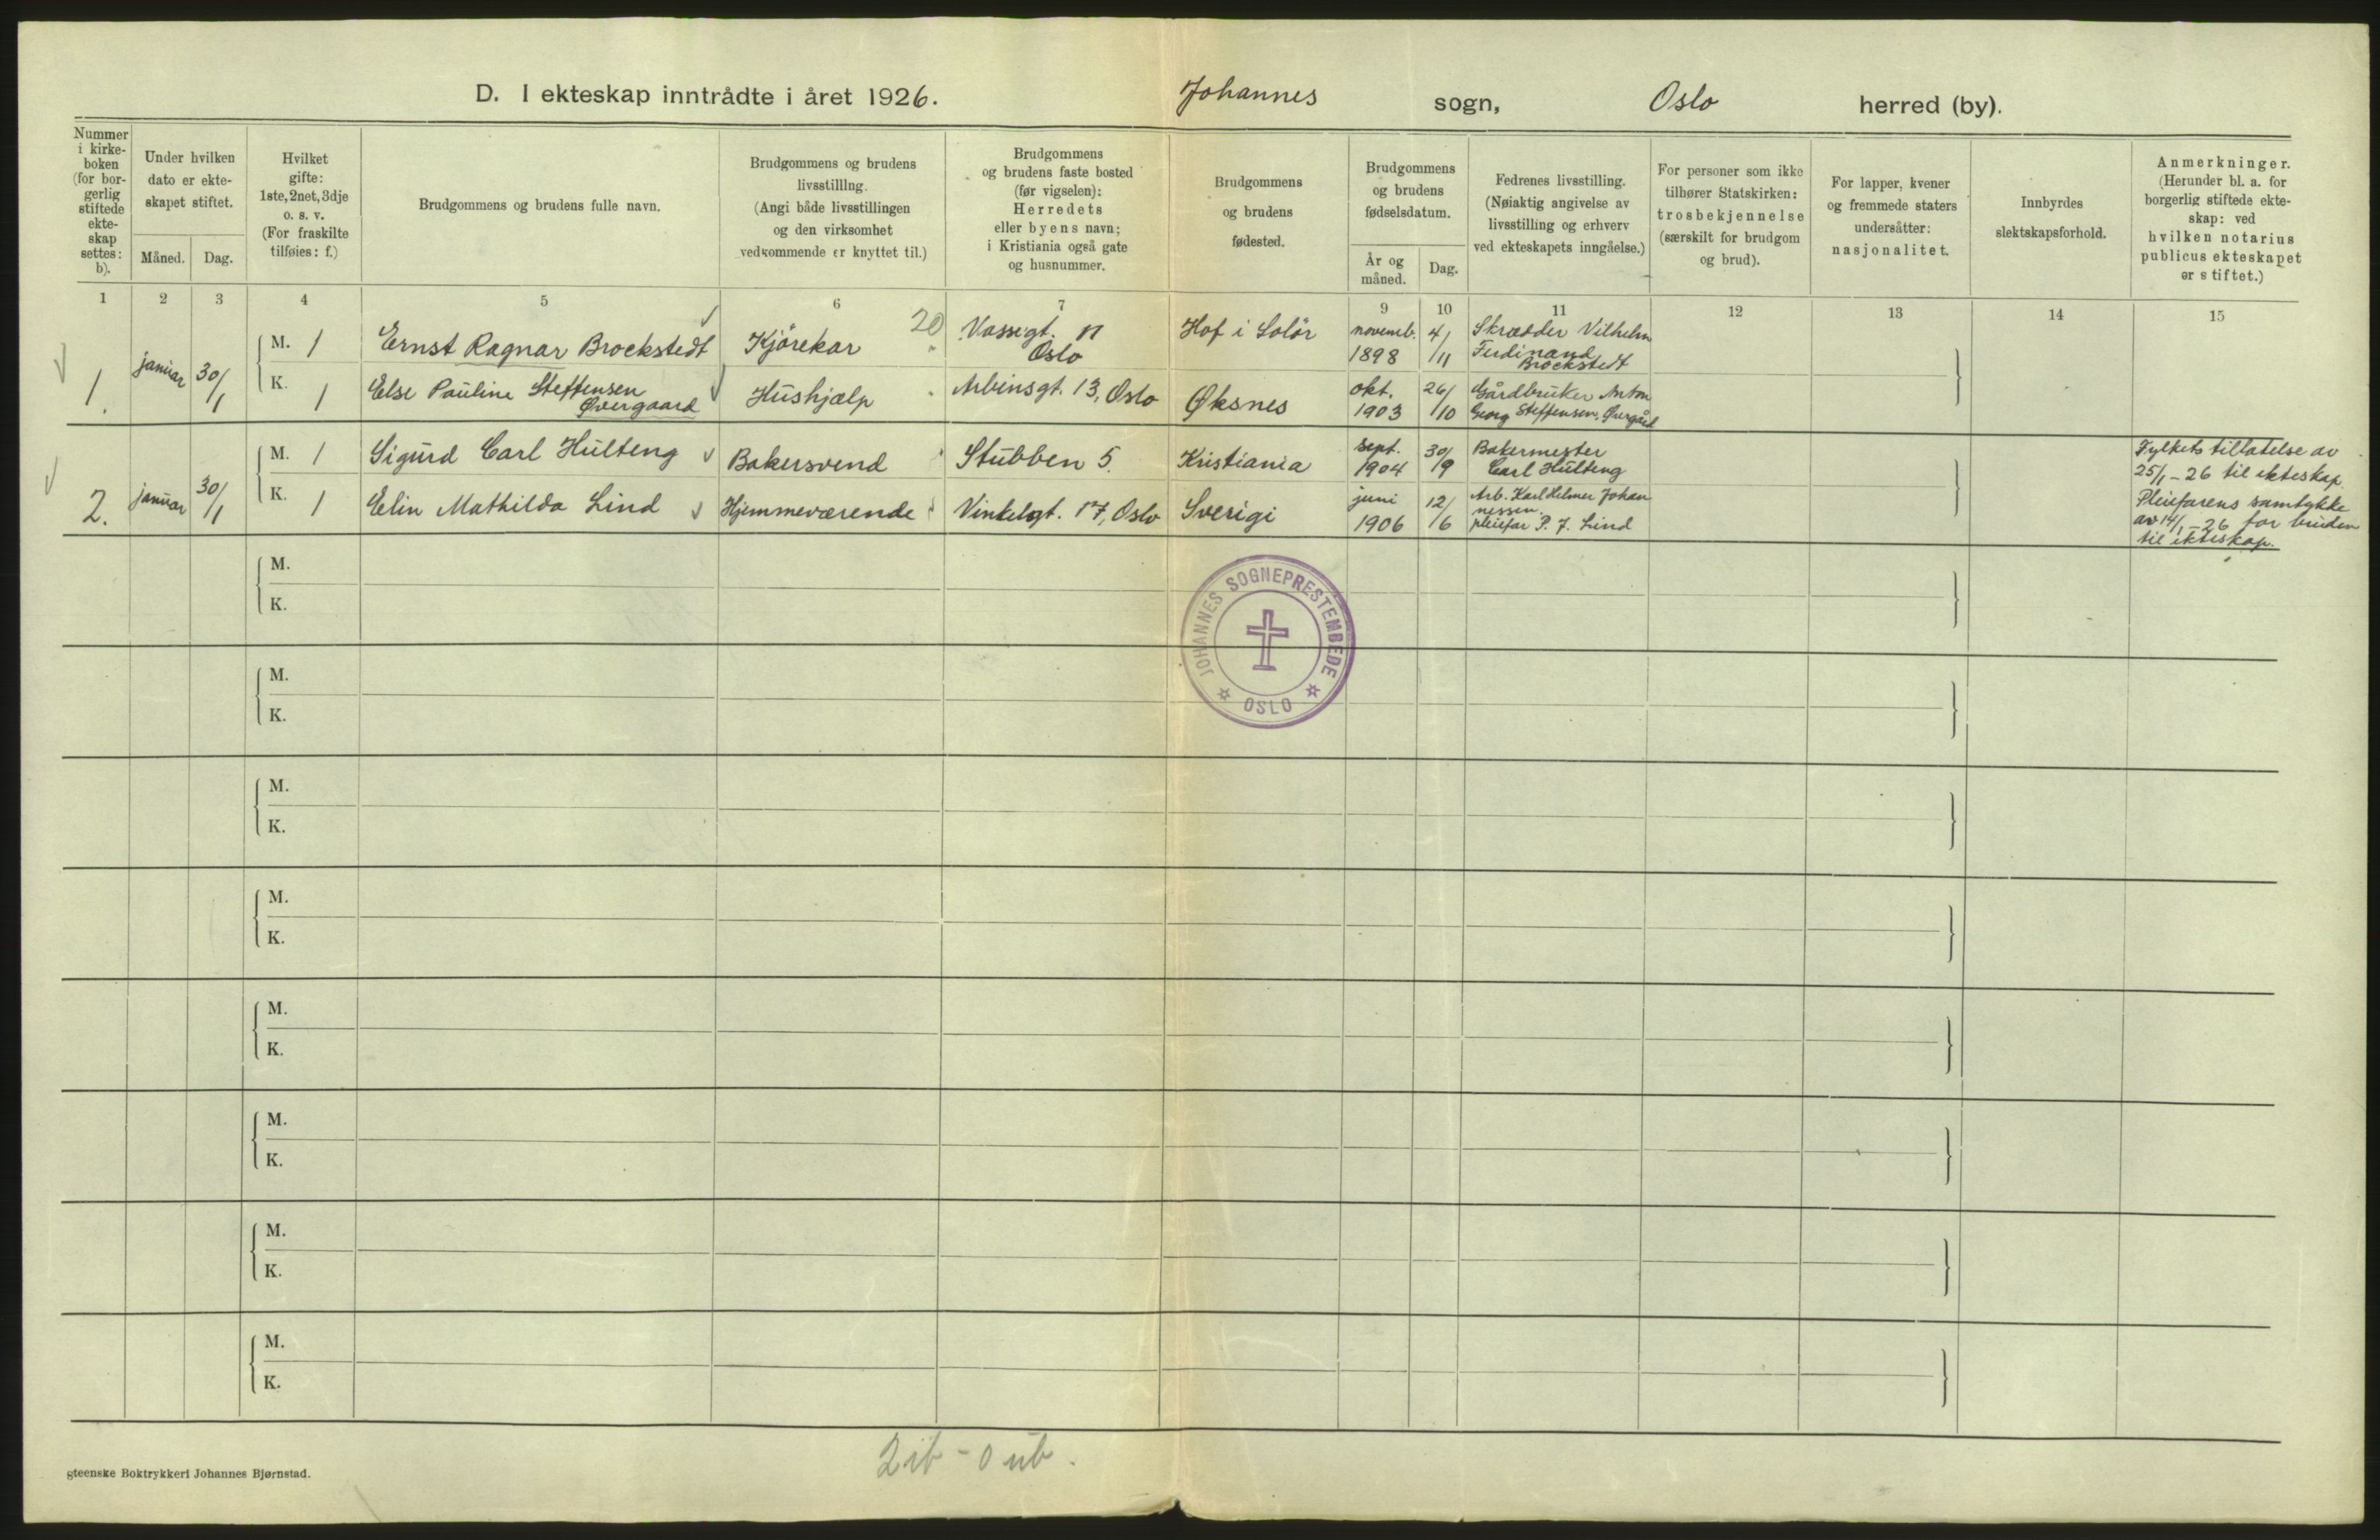 D. I ekteskap inntrådte i året 1926.
Johannes sogn, Oslo herred (by).
Nummer i kirke-boken (for bor-gerlig stiftede ekte-skap settes: b).
Under hvilken dato er ekte-skapet stiftet.
Måned.
Dag.
Hvilket gifte: 1ste, 2net, 3dje o. s. v. (For fraskilte tilføies: f.)
Brudgommens og brudens fulle navn.
Brudgommens og brudens livsstilling. (Angi både livsstillingen og den virksomhet vedkommende er knyttet til.)
Brudgommens og brudens faste bosted (før vigselen): Herredets eller byens navn; i Kristiania også gate og husnummer.
Brudgommens og brudens fødested.
Brudgommens og brudens fødselsdatum.
År og måned.
Dag.
Fedrenes livsstilling. (Nøiaktig angivelse av livsstilling og erhverv ved ekteskapets inngåelse.)
For personer som ikke tilhører Statskirken: trosbekjennelse (særskilt for brudgom og brud).
For lapper, kvener og fremmede staters undersåtter: nasjonalitet.
Innbyrdes slektskapsforhold.
Anmerkninger. (Herunder bl. a. for borgerlig stiftede ekte-skap: ved hvilken notarius publicus ekteskapet er stiftet.)
1 2 3 4 5 6 7 9 10 11 12 13 14 15
1. januar 30/1
M. 1 Ernst Ragnar Brockstedt Kjörekar 20 Vassegt. 11 Oslo Hof i Solör novemb. 1898 4/11 Skrædder Vilhelm Ferdinand Brockstedt
K. 1 Else Pauline Steffensen Øvergaard Hushjælp Arbinsgt. 13, Oslo Øksnes okt. 1903 26/10 Gårdbruker Anton Georg Steffensen Øvergård
2. januar 30/1
M. 1 Sigurd Carl Hulteng Bakersvend Stubben 5. Kristiania sept. 1904 30/9 Bakermester Carl Hulteng
Fylkets tillatelse av 25/1-26 til ekteskap.
K. 1 Elin Mathilda Lind Hjemmeværende Vinkelgt. 17, Oslo Sverige juni 1906 12/6 Arb. Karl Helmer Johannessen. pleiefar P. J. Lind
Pleiefarens samtykke av 14/1-26 for bruden til ekteskap.
M.
K.
JOHANNES SOGNEPRESTEMBEDE
OSLO
M.
K.
M.
K.
M.
K.
M.
K.
M.
K.
M.
K.
M.
K.
2 ib - 0 ub.
gteenske Boktrykkeri Johannes Bjørnstad.